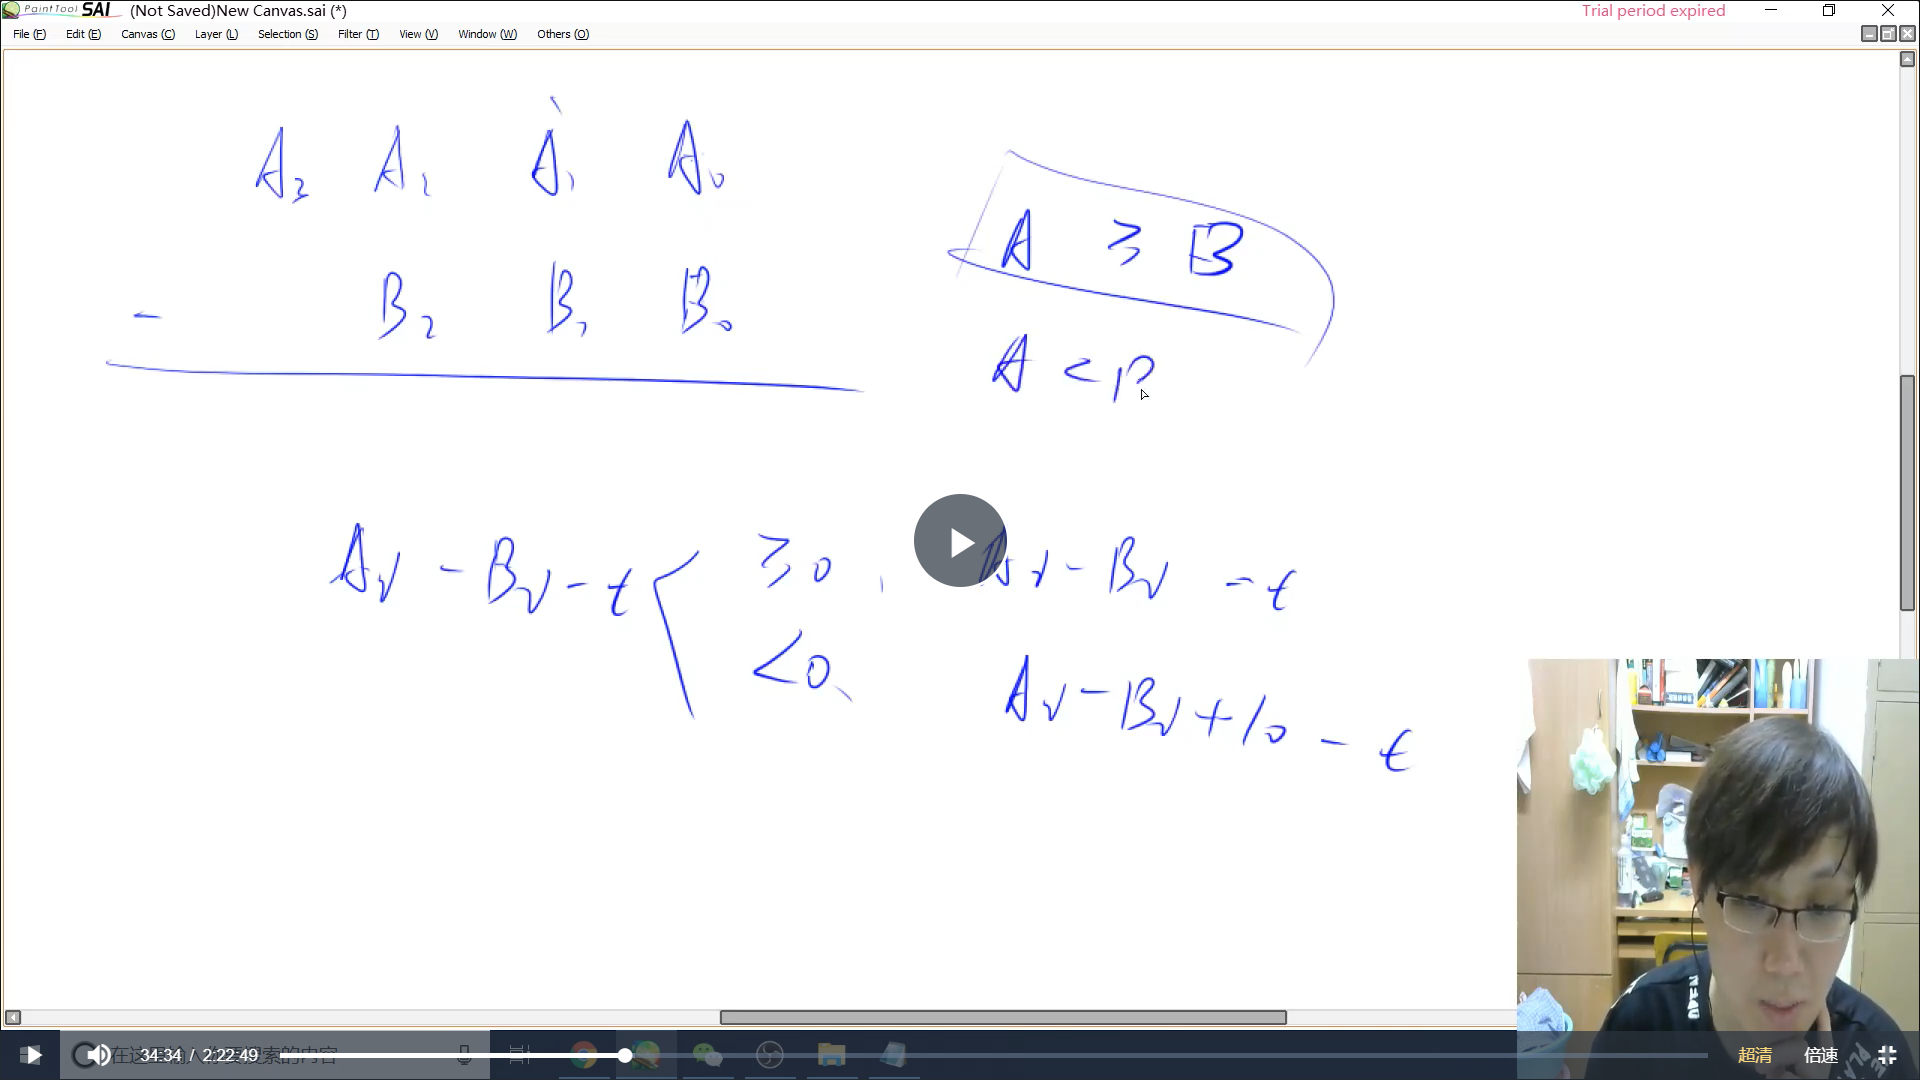 PaintTool SAI (Not Saved)New Canvas.sai (*) Trial period expired
File (F) Edit (E) Canvas (C) Layer (L) Selection (S) Filter (T) View (V) Window (W) Others (O)
A₃ A₂ A₁ A₀
A ≥ B
- B₂ B₁ B₀
A <
Ai - Bi - t ≥0, Ai - Bi - t
<0, Ai - Bi + 10 - t
34:34 / 2:22:49 超清 倍速